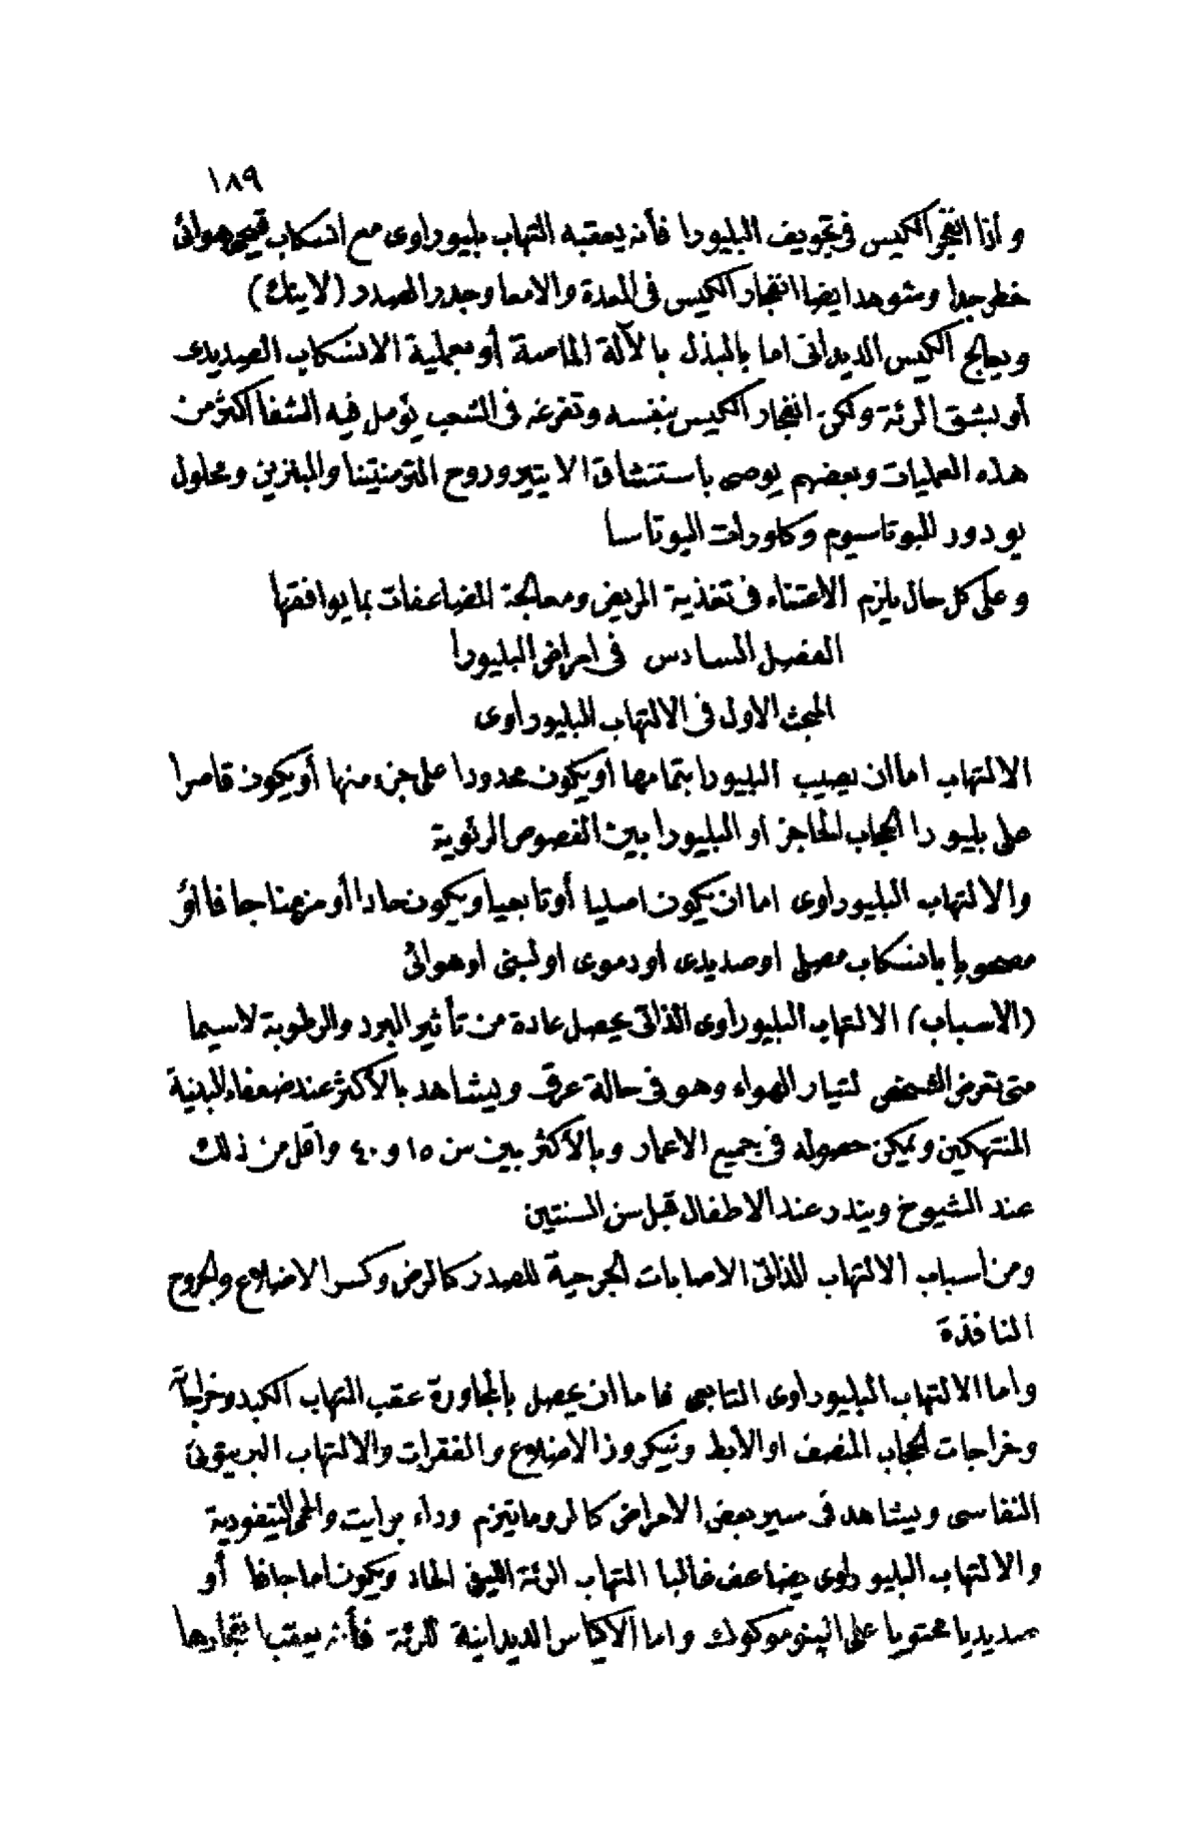 ١٨٩
واذا انفجر الكيس فى تجويف البليورا فأنه يعقبه التهاب بليوراوى مع انسكاب قيحى هوائى
خطر جدا وشوهد ايضا انفجار الكيس فى المعدة والامعا وجدر الصدر (لايتك)
ويعالج الكيس الديدانى اما بالبذل بالآلة الماصة أو بعملية الانسكاب الصديدى
أو بشق الرئة ولكن انفجار الكيس بنفسه وتفرغه فى الشعب يؤمل فيه الشفا اكثر من
هذه العمليات وبعضهم يوصى باستنشاق الايتير وروح الترمنتينا والبنزين ومحلول
يودور البوتاسيوم وكلورات البوتاسا
وعلى كل حال يلزم الاعتناء فى تغذية المريض ومعالجة المضاعفات بما يوافقها
الفصل السادس فى امراض البليورا
المبحث الاول فى الالتهاب البليوراوى
الالتهاب اما أن يصيب البليورا بتمامها او يكون محدودا على جزء منها أو يكون قاصرا
على بليورا الحجاب الحاجز او البليورا بين الفصوص الرئوية
والالتهاب البليوراوى اما ان يكون اصليا أو تابعيا ويكون حادا أو مزمنا جافا أو
مصحوبا بانسكاب مصلى او صديدى او دموى او لبنى او هوائى
(الاسباب) الالتهاب البليوراوى الذاتى يحصل عادة من تأثير البرد والرطوبة لاسيما
متى تعرض الشخص لتيار الهواء وهو فى حالة عرق ويشاهد بالأكثر عند ضعفاء البنية
المنتهكين ويمكن حصوله فى جميع الاعمار وبالأكثر بين سن ١٥ و ٤٠ واقل من ذلك
عند الشيوخ ويندر عند الاطفال قبل سن السنتين
ومن اسباب الالتهاب الذاتى الاصابات الجرحية للصدر كالرض وكسر الاضلاع والجروح
النافذة
واما الالتهاب البليوراوى التابعى فاما ان يحصل بالمجاورة عقب التهاب الكبد وخراجاته
وخراجات الحجاب المنصف او الأبط ونيكروز الاضلاع والفقرات والالتهاب البريتونى
النفاسى ويشاهد فى سير بعض الامراض كالروماتيزم وداء برايت والحمى التيفودية
والالتهاب البليوراوى يضاعف غالبا التهاب الرئة الليفى الحاد ويكون اما جافا أو
صديديا محتويا على البنوموكوك واما الاكياس الديدانية للرئة فأنه يعقب انفجارها